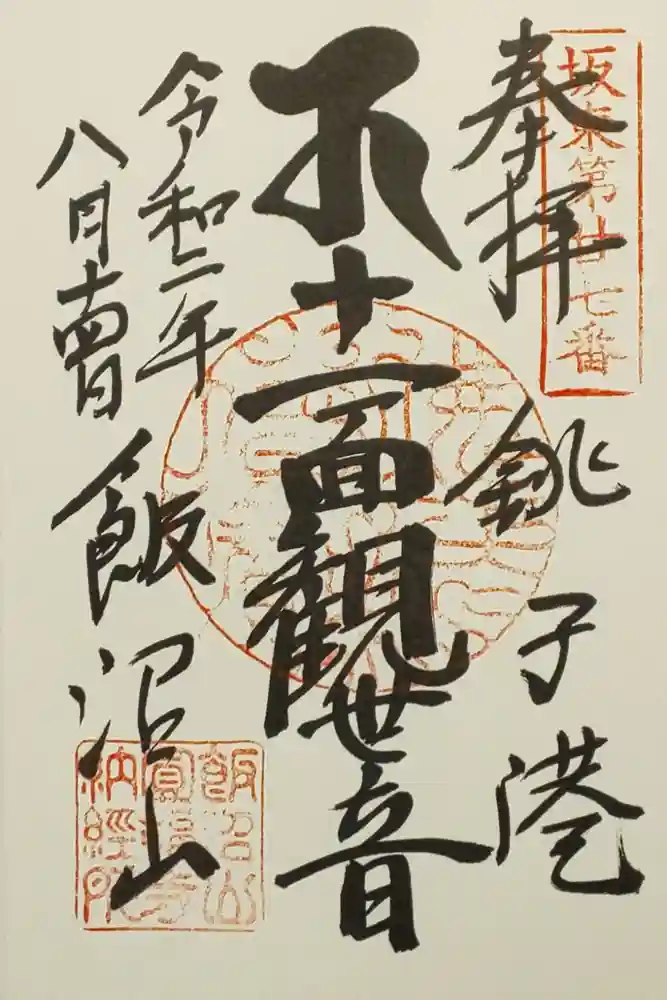 坂東第廿七番
奉拝
銚子港
十一面観世音
令和二年
八月
飯沼山
飯沼山
圓福寺
納經